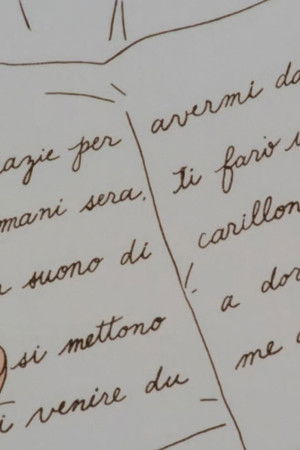 azie per avermi da
mani sera. ti farò
suono di carillon
si mettono a dor
i venire du me